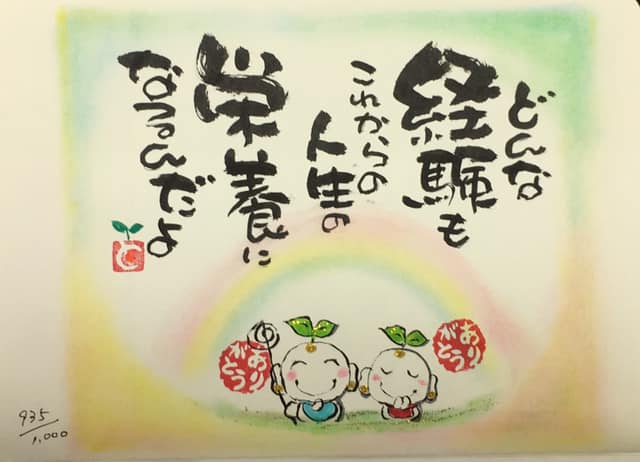 どんな
経験も
これからの
人生の
栄養に
なるんだよ
と
あり
がとう
あり
がとう
935/1,000